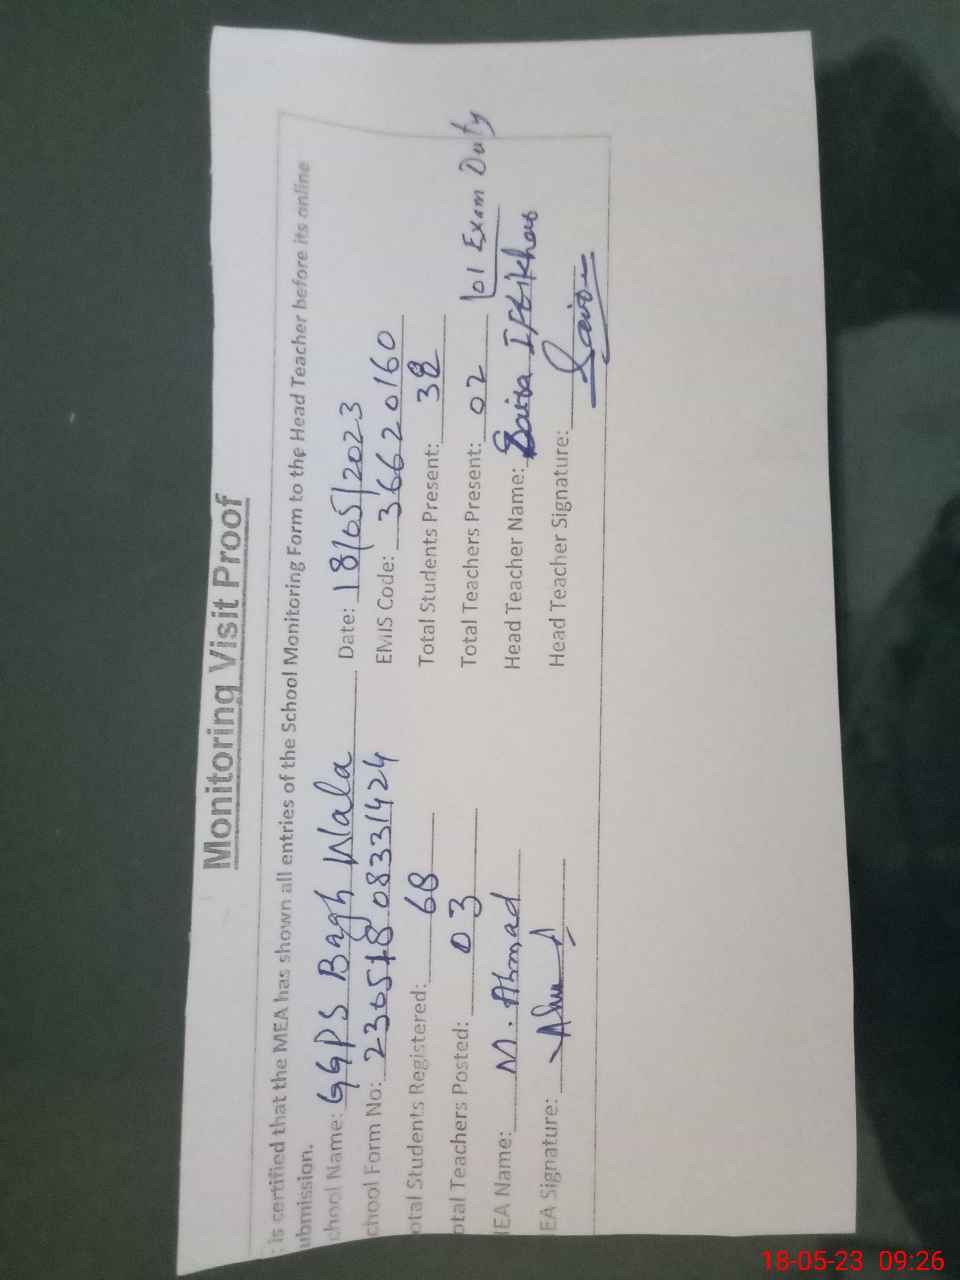 Monitoring Visit Proof
is certified that the MEA has shown all entries of the School Monitoring Form to the Head Teacher before its online
ubmission.
chool Name: GGPS Bagh Wala Date: 18/05/2023
chool Form No: 23051808331424 EMIS Code: 36620160
otal Students Registered: 68 Total Students Present: 38
otal Teachers Posted: 03 Total Teachers Present: 02 01 Exam Duty
EA Name: M. Ahmad Head Teacher Name: Saira Iftikhar
EA Signature: Head Teacher Signature: Saira
18-05-23 09:26